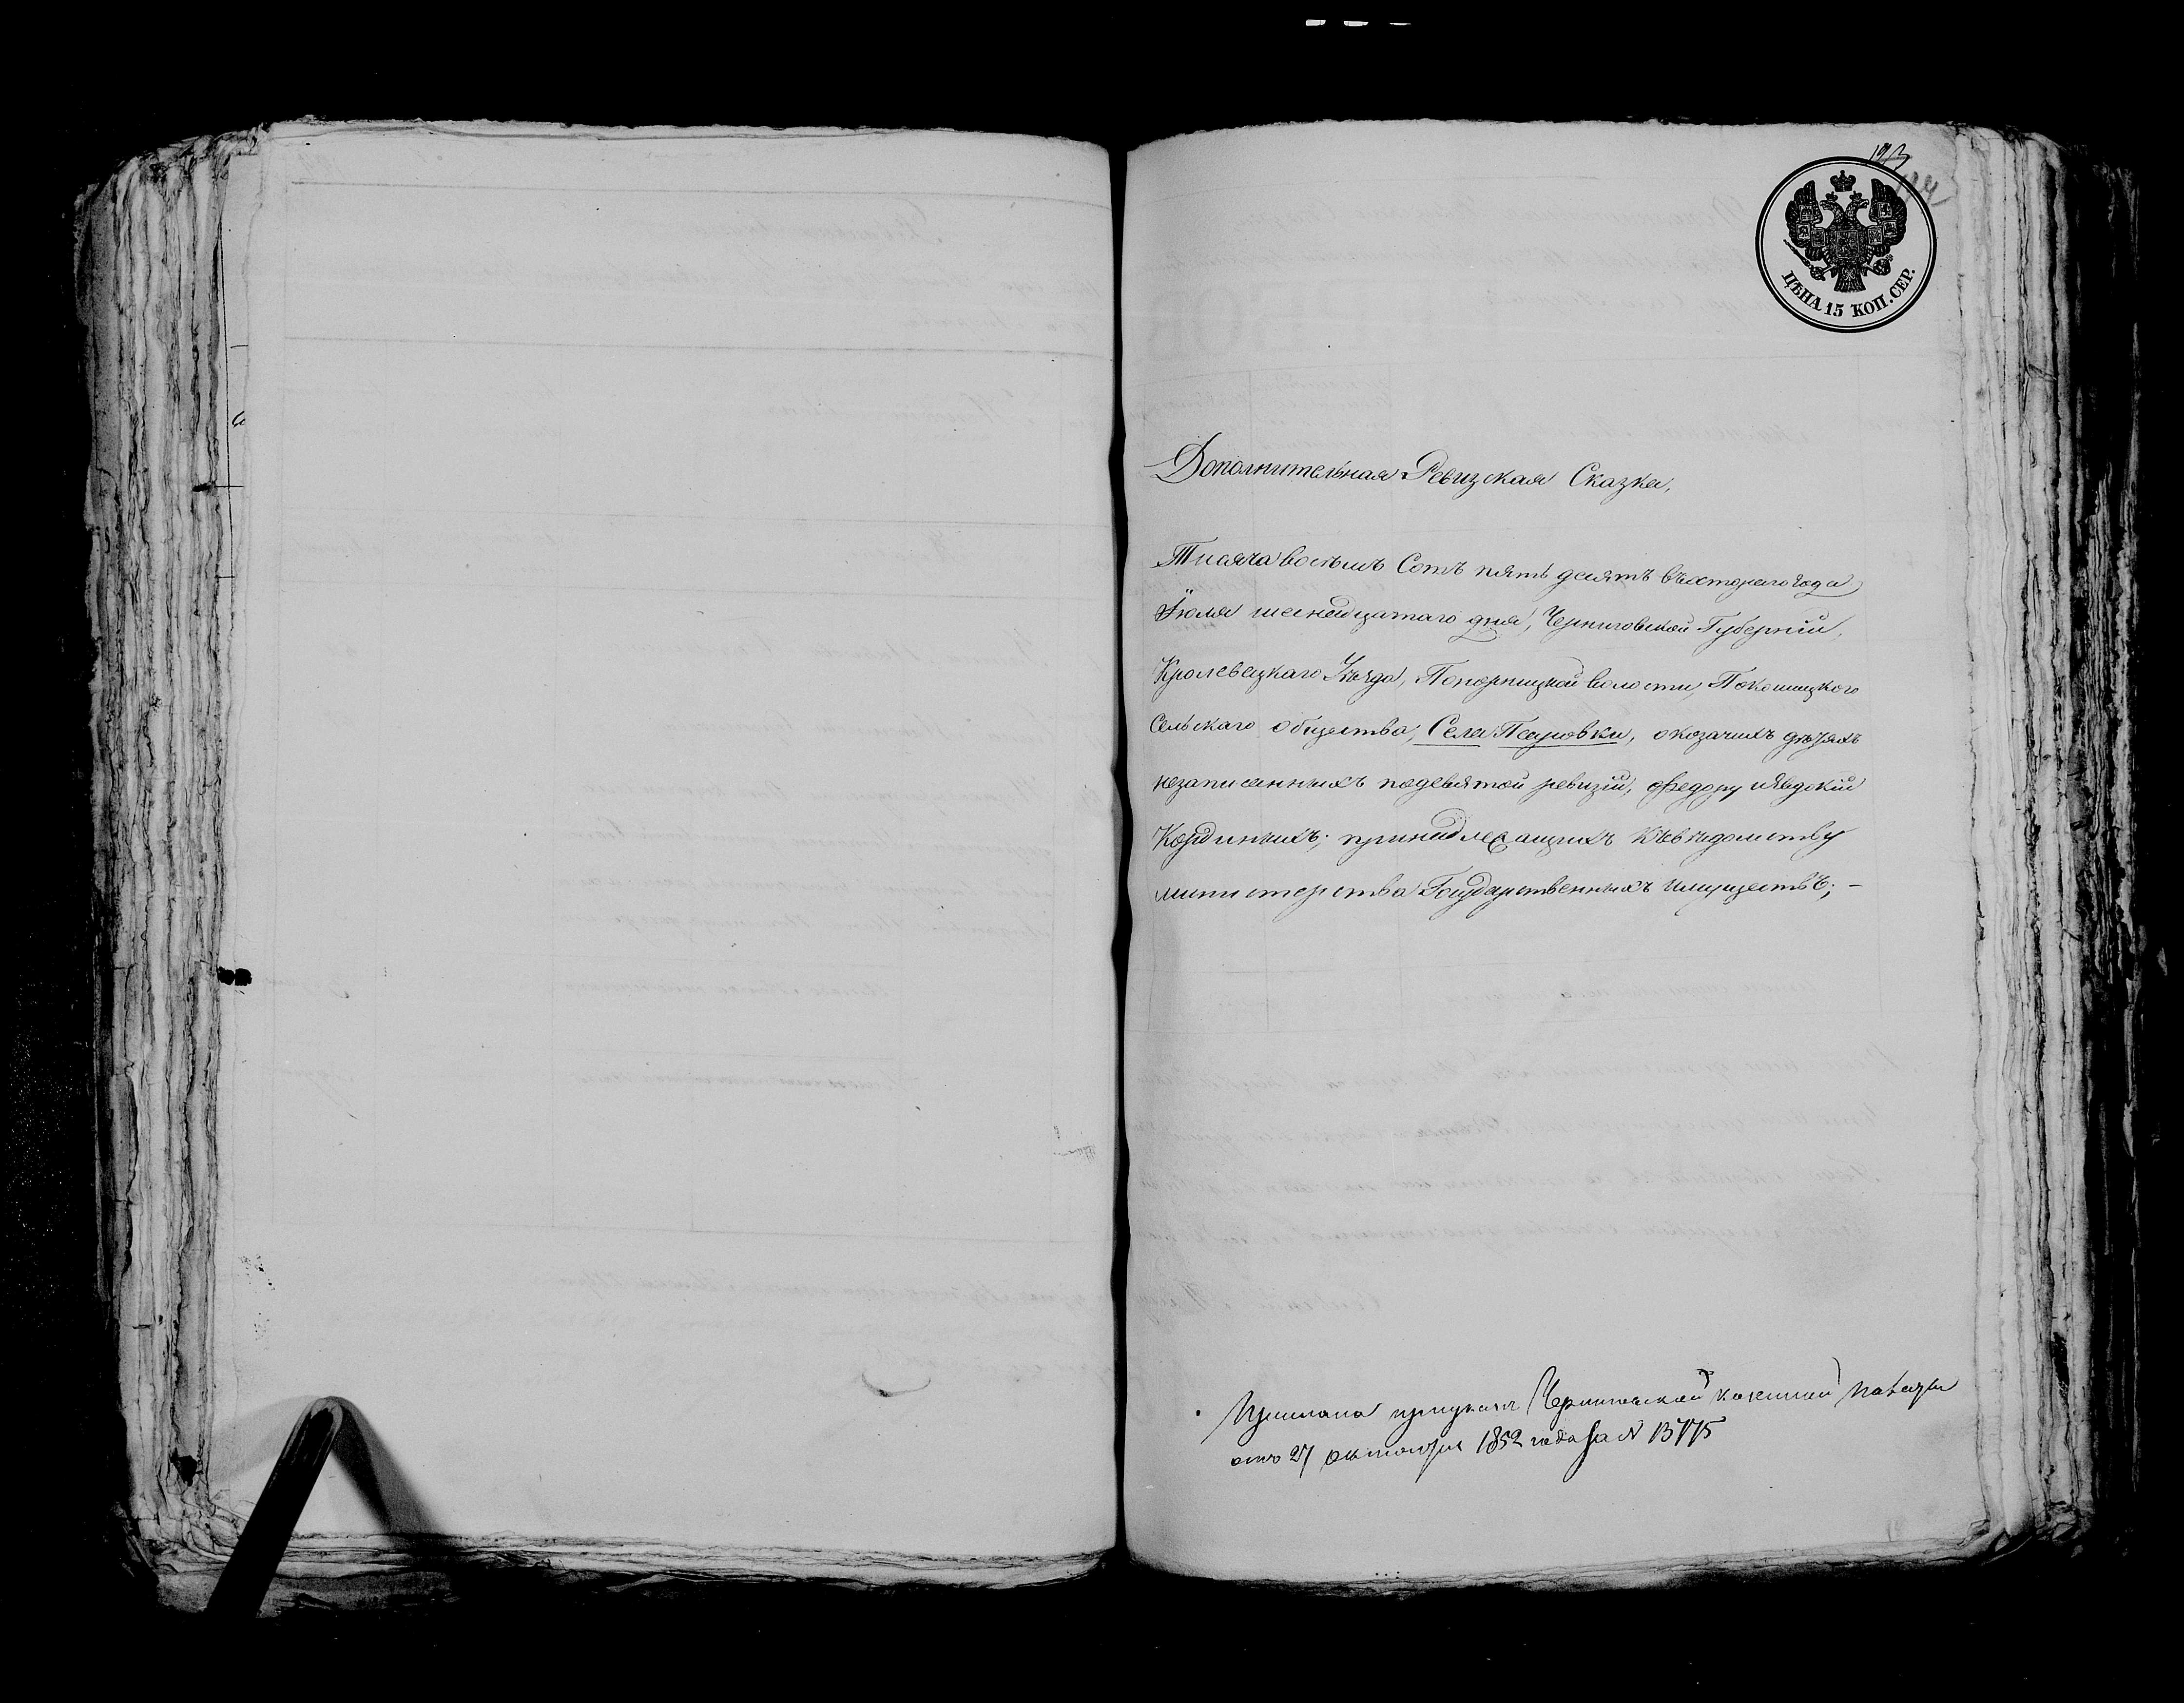 ЦѢНА 15 КОП. СЕР.
Дополнительная Ревизская Сказка,
Тисяча восемъ Сотъ пять десятъ втораго года
Іюля шеснадцатаго дня, Черниговской Губерніи,
Кролевецкаго Уезда, Понорницкой волости, Покошицкого
Сельскаго общества, Села Псаровки, о
незаписанныхъ подевятой ревизіи, Федору иявдокіи
принадлежащихъ къведомству
министерства Государственныхъ имуществъ; –
Прислана Черниговской казенной палаты
отъ 27 октября 1852 года за N 13775